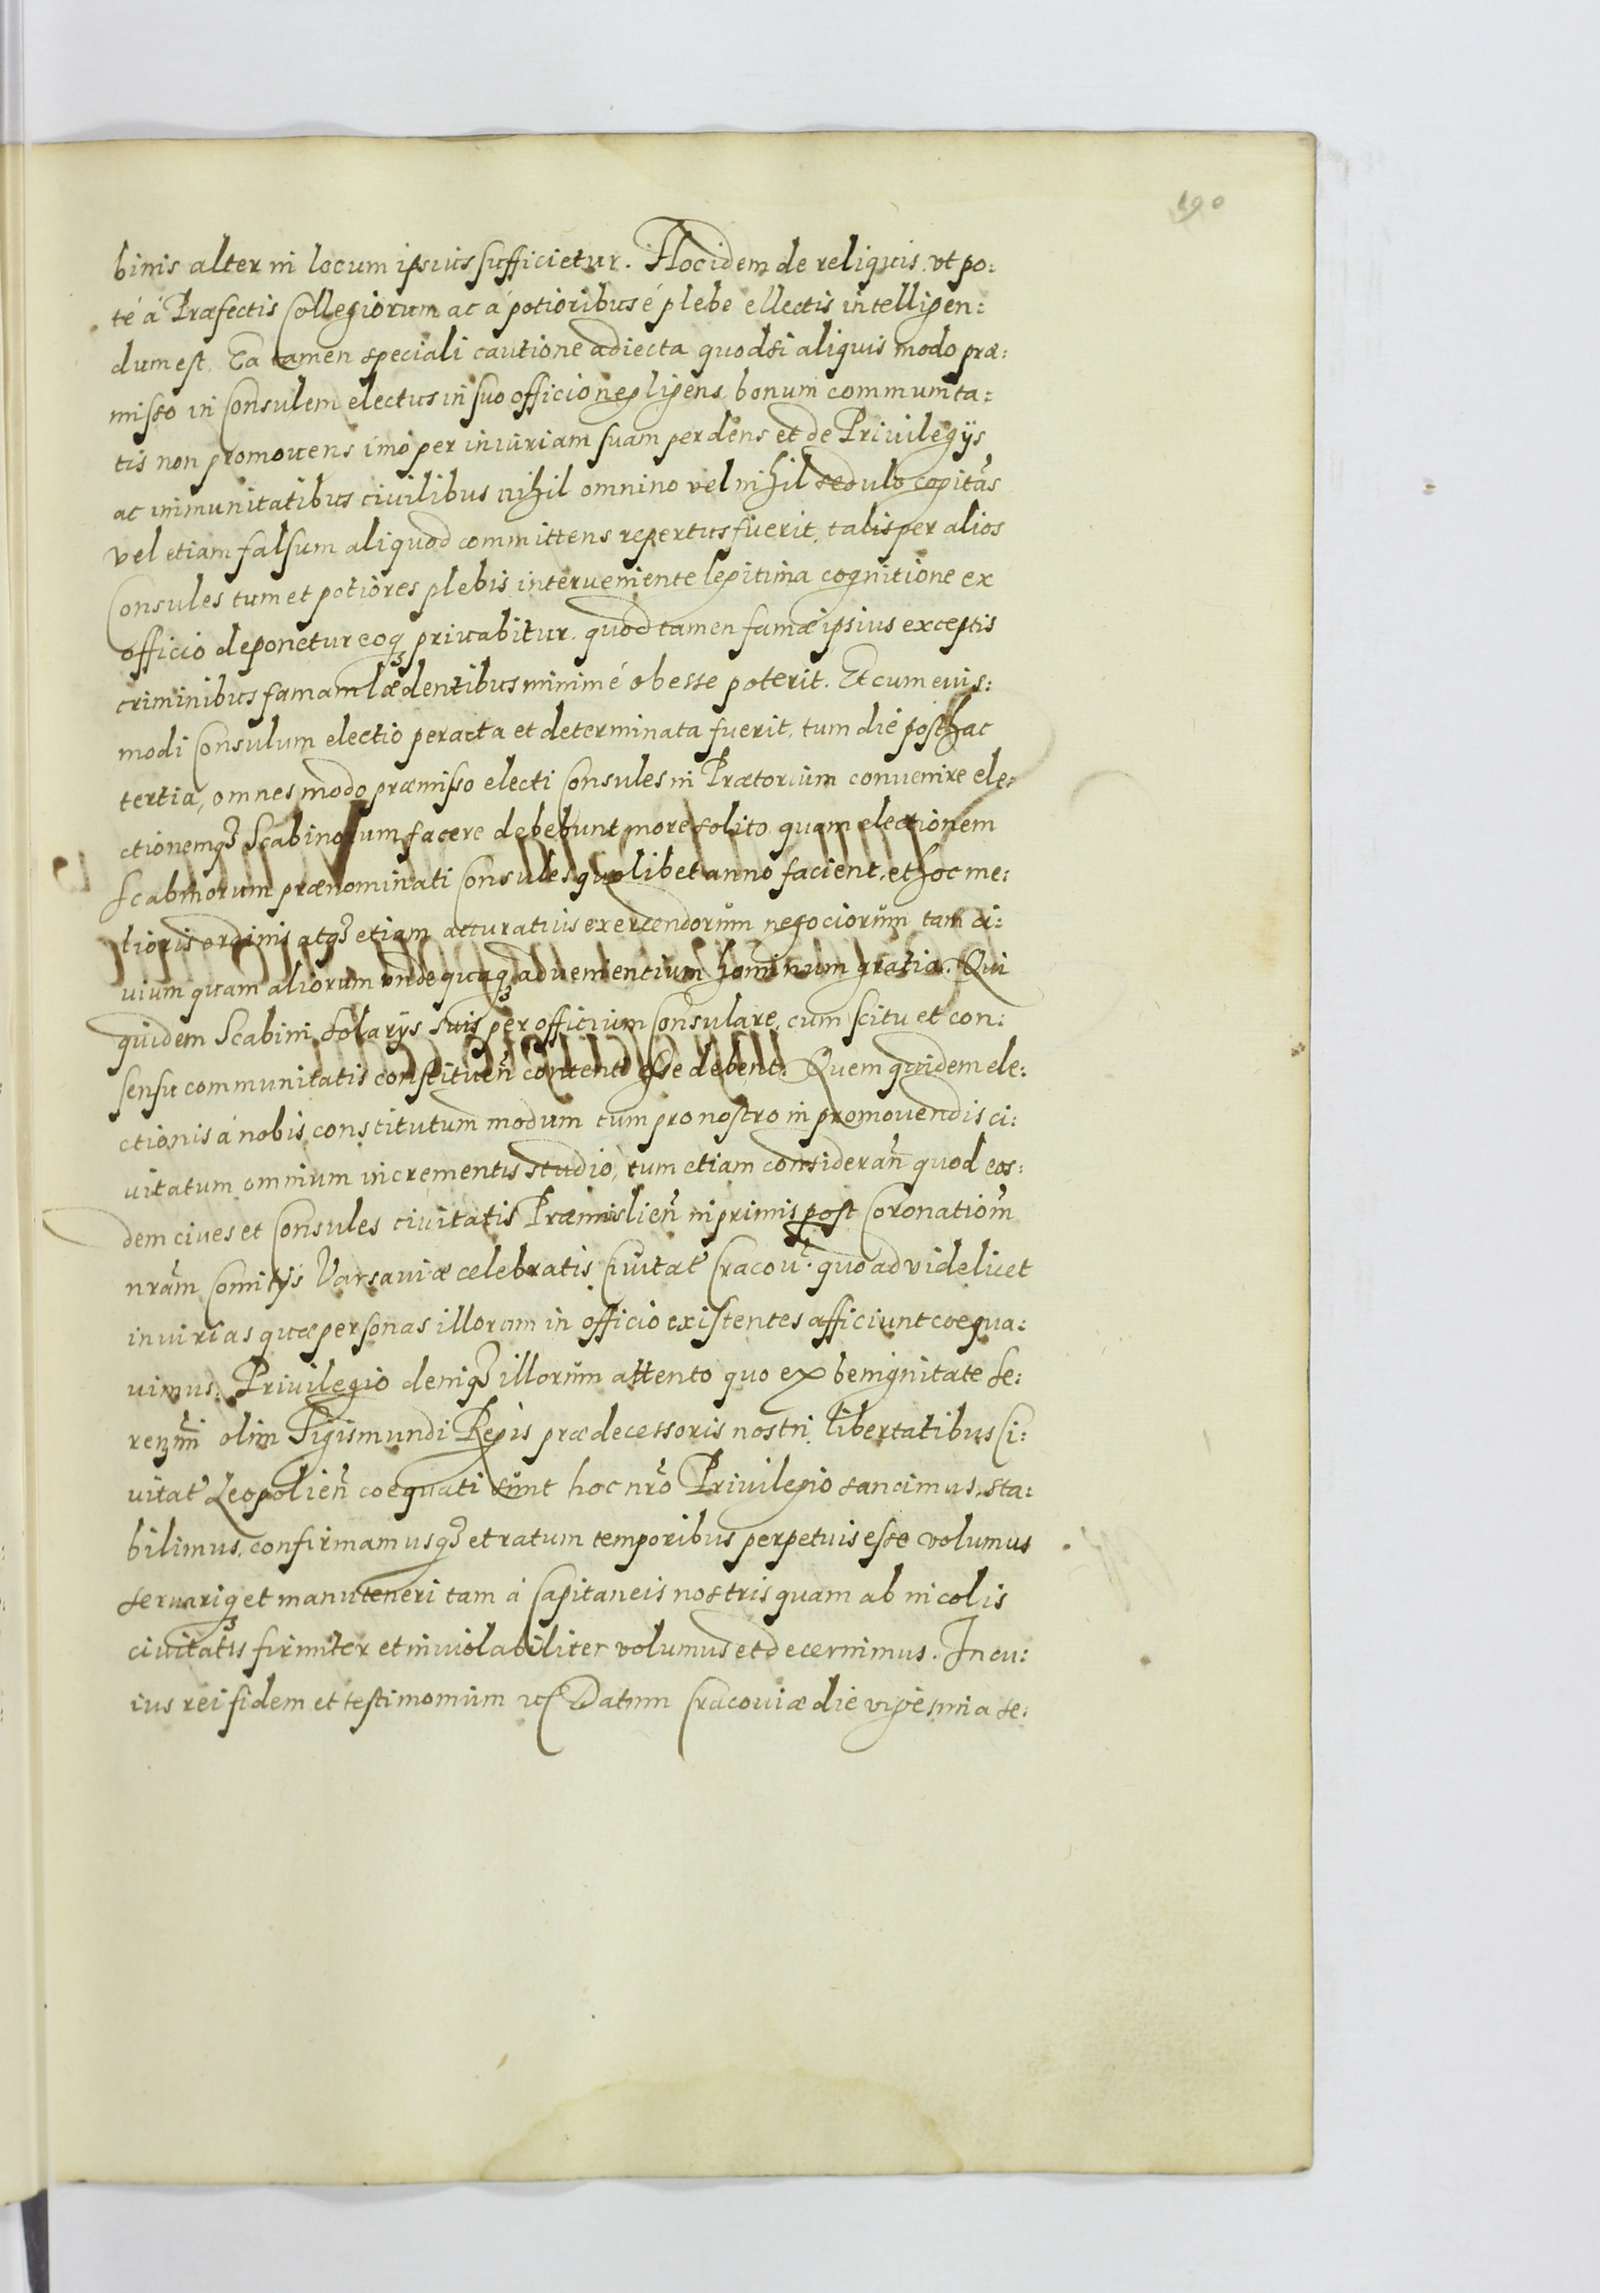 190
binis alter in locum ipsius sufficietur. Hoc idem de reliquis. vt po:
té á Præfectis Collegiorum ac á potioribus é plebe ellectis intelligen:
dum est. Ea tamen speciali cautione adiecta quod si aliquis modo præ:
misso in Consulem electus in suo officio negligens, bonum communita:
tis non promouens imó per iniuriam suam perdens et de Priuilegÿs
ac immunitatibus ciuilibus nihil omnino vel nihil sedulo cogitãs
vel etiam falsum aliquod committens repertus fuerit, talis per alios
Consules tum et potiores plebis interueniente legitima cognitione ex
officio deponetur eoqꝫ priuabitur. quod tamen famæ ipsius exceptis
criminibus famam lædentibus minimé obesse poterit. Et cum euis:
modi Consulum electio peracta et determinata fuerit, tum die posthac
tertia, omnes modo præmisso electi Consules in Prætorium conuenire ele:
ctionemqꝫ Scabinorum facere debebunt more solito. quam electionem
Scabinorum prænominati Consules quolibet anno facient, et hoc me:
lioris ordinis atqꝫ etiam accuratius exercendorum negociorum tam ci:
uium quam aliorum vndequaqꝫ aduenientium hominum gratia. Qui
quidem Scabini solarÿs suis per officium Consulare, cum scitu et con:
sensu communitatis constituen̄ contenti esse debent. Quem quidem ele:
ctionis á nobis constitutum modum tum pro nostro in promouendis ci:
uitatum omnium incrementis studio, tum etiam consideran̄ quod eos:
dem ciues et Consules ciuitatis Præmislien̄ inprimis post Coronatiom̃
nrãm Comitÿs Varsauiæ celebratis Ciuitat Cracou. quoad videlicet
iniurias quæ personas illorum in officio existentes afficiunt coequa:
uimus. Priuilegio deniqꝫ illorum attento quo ex benignitate se:
renmi olim Sigismundi Regis prædecessoris nostri, libertatibus Ci:
uitat Leopolien̄ coequati sunt hoc nrõ Priuilegio sancimus, sta:
bilimus, confirmamusqꝫ et ratum temporibus perpetuis esse volumus
seruariqꝫ et manuteneri tam á Capitaneis nostris quam ab incolis
ciuitatis firmiter et inuiolabiliter volumus et decernimus. In cu:
ius rei fidem et testimonium Datum Cracouiæ die vigesima se: